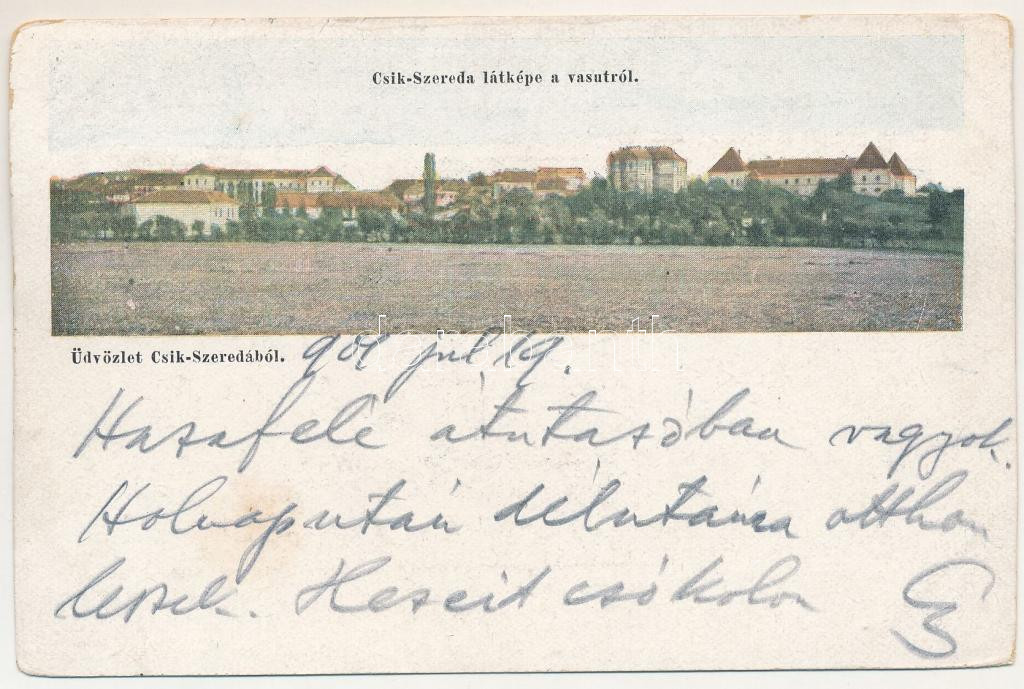 Csik-Szereda látképe a vasutról.
darabanth
Üdvözlet Csik-Szeredából. 901 jul 19.
Hazafelé átutazóban vagyok.
Holnapután délutánra otthon
leszek. Kezeid csókolom